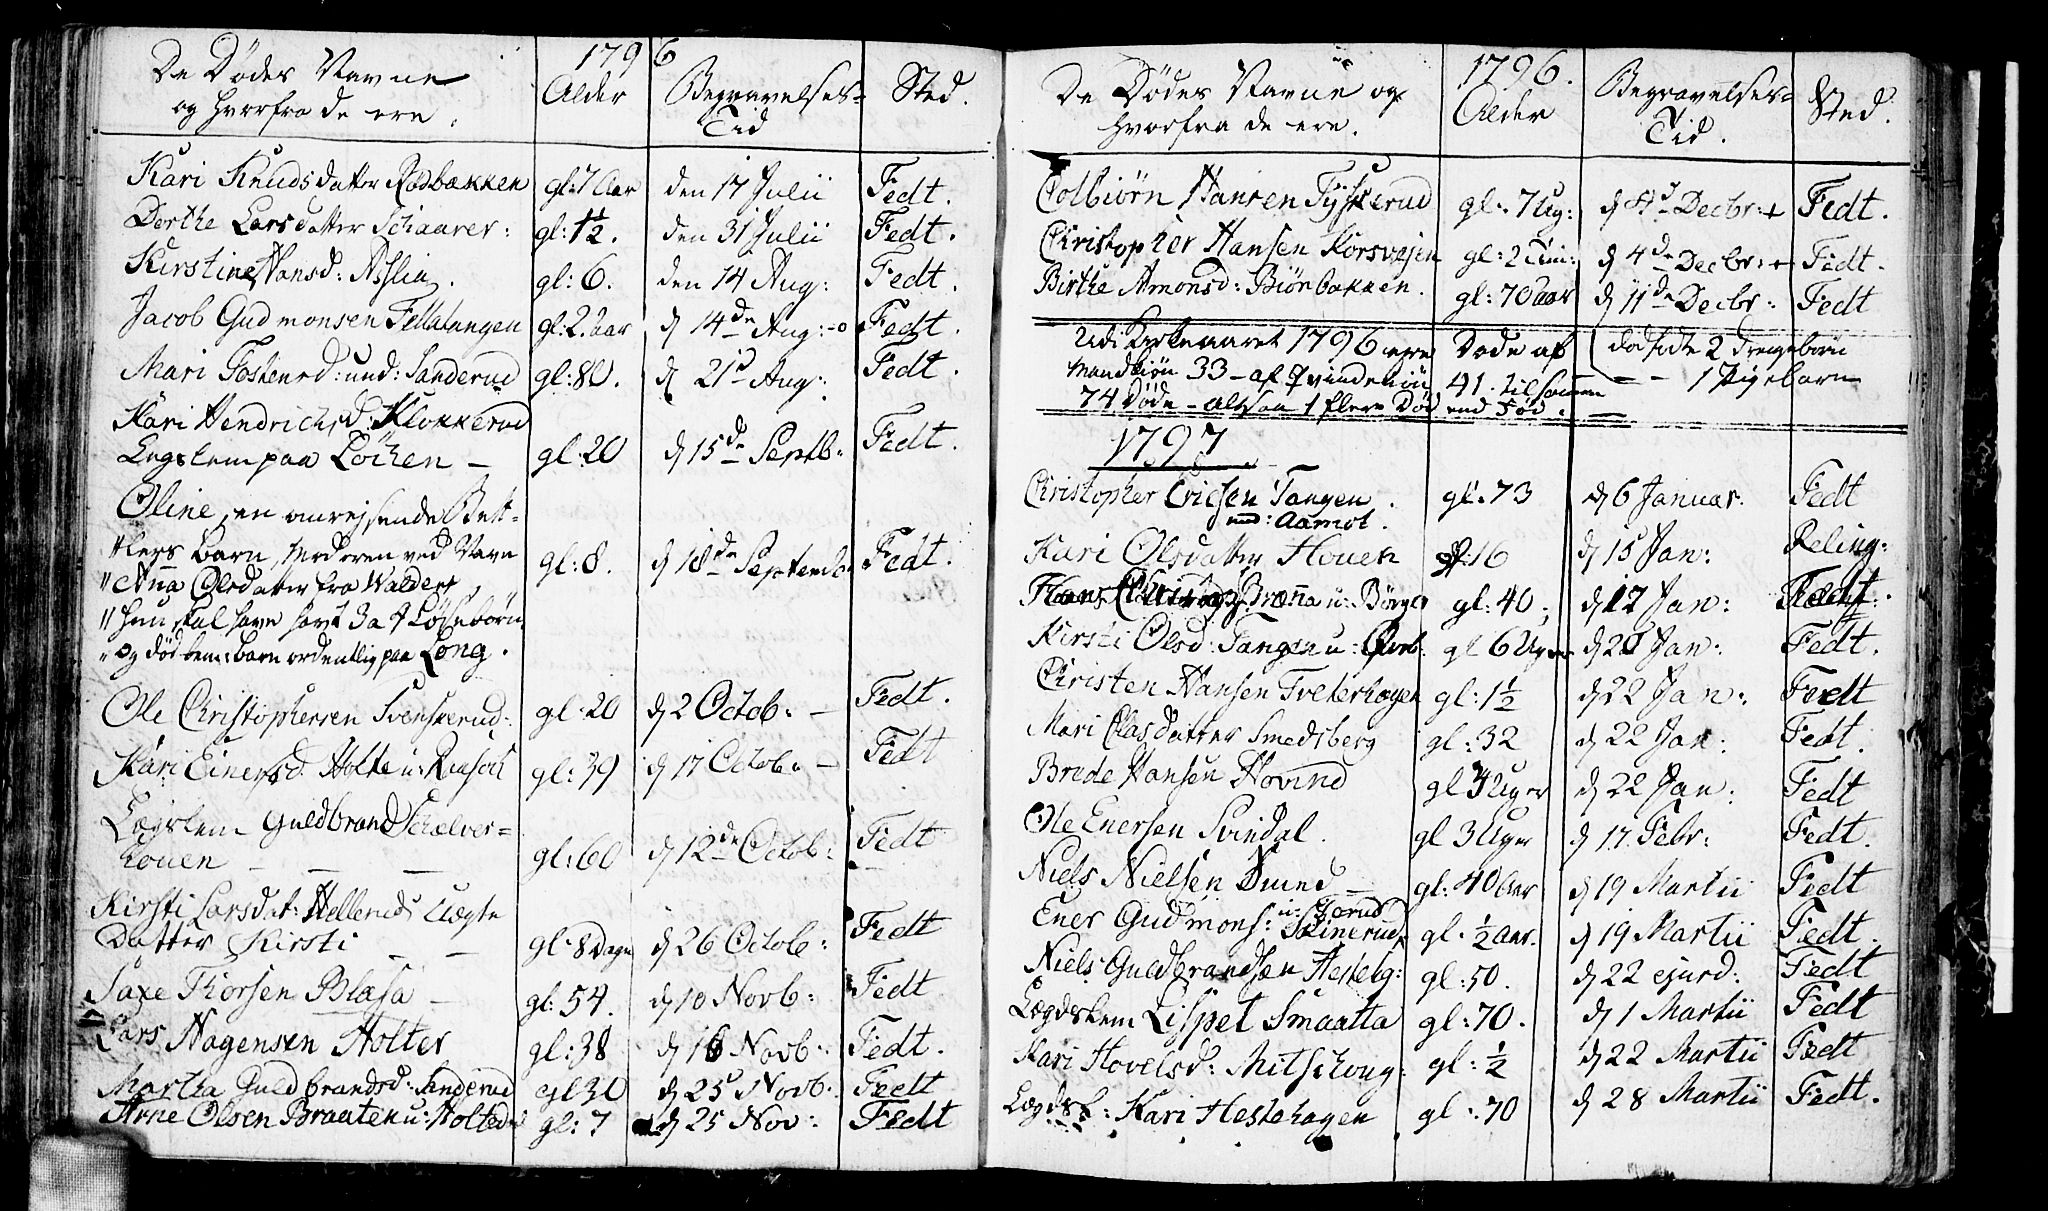 1796
De Dødes Navne
og hvorfra de ere.
Alder
Begravelses-
Tid
Sted.
Kari Knudsdatter Rødbakken gl: 7 Aar den 17 Julii Fedt.
Dorthe Larsdatter Schaarer: gl: 1½. den 31 Julii Fedt.
Kirstine Hansd: Asslia. gl: 6. den 14 Aug: Fedt.
Jacob Gudmonsen Fellatangen gl: 2. aar d 14de Aug: Fedt.
Mari Tostensd: und: Sanderud gl: 80. d 21 Aug: Fedt.
Kari Hendrichsd: Klokkerud
Legdslem paa Löchen – gl: 20 d 15de Septb: Fedt.
Oline, en omrejsende Bet-
"lers Barn, Moderen ved Navn gl: 8. d 18de Septemb: Fedt.
"Anna Olsdatter fra Walders,
"hun skal have havt 3 a 4 Løsebørn,
"og død barn ordentlig paa Long.
Ole Christophersen Svenskerud: gl: 20 d 2 Octob: – Fedt.
Kari Einersd. Holte u: gl: 39 d 17 Octob: – Fedt
Lægslem Guldbrand Schælver=
houen – – – gl: 60 d 12de Octob: Fedt
Kirsti Larsdat: Hellerud Uægte
Datter Kirsti – – gl: 8 Dage d 26 Octob: Fedt
Saxe Thorsen Blasa – gl: 54. d 10 Novb: Fedt
Lars Hagensen Holter gl: 38 d 16 Novb: Fedt.
Martha Guldbrandsd: Sanderud gl 30 d 25 Novb: Fedt
Arne Olsen Braaten u: Holter gl: 7 d 25 Nov: Fedt
1796.
De Dødes Navne og
hvorfra de ere.
Alder
Begravelses=
Tid.
Sted.
Colbiørn Hansen Tyskerud gl: 7 Ug: d 4de Decbr: Fedt.
Christopher Hansen Korsvejen gl: 2 Tim: d 4de Decbr: Fedt.
Birthe Amonsd: Biønbakken. gl: 70 aar d 11de Decbr: Fedt
Udi Kirkeaaret 1796 ere Døde af dødfødte 2 Drengebørn
Mandkiøn 33 – af Qvindekiøn 41. tilsammen – – 1 Pigebarn
74 Døde – altsaa 1 flere Død end Fød.
1797
Christopher Ericsen Tangen. gl: 73 d 6 Januar. Fedt
und: Aamot.
Kari Olsdatter Houen gl: 16 d 15 Jan: Reling:
Hans Brænna u: Börge gl: 40; d 17 Jan: Fedt.
Kirsti Olsd: Tangen u: gl 6 Uger d 20 Jan: Fedt.
Christen Hansen Treterhagen gl: 1½ d 22 Jan: Fedt
Mari Clasdatter Smedsberg gl: 32 d 22 Jan: Fedt.
Brede Hansen Hovind gl 4 Uger d 22 Jan: Fedt
Ole Enersen Svindal. gl 3 Uger d 17. Febr: Fedt.
Niels Nielsen Smed – gl: 40 Aar d 19 Martii Fedt
Ener Gudmons: Skinerud gl: ½ Aar. d 19 Martii Fedt.
Niels Guldbrandsen Hesteb: gl: 50. d 22 ejusd: Fedt
Lægdslem Lispet Smaatta gl: 70. d 1 Martii Fedt
Kari Hovelsd: Mitschoug: gl: ½ d 22 Martii Fedt
Lægdsl: Kari Hestehagen gl: 70 d 28 Martii Fedt.